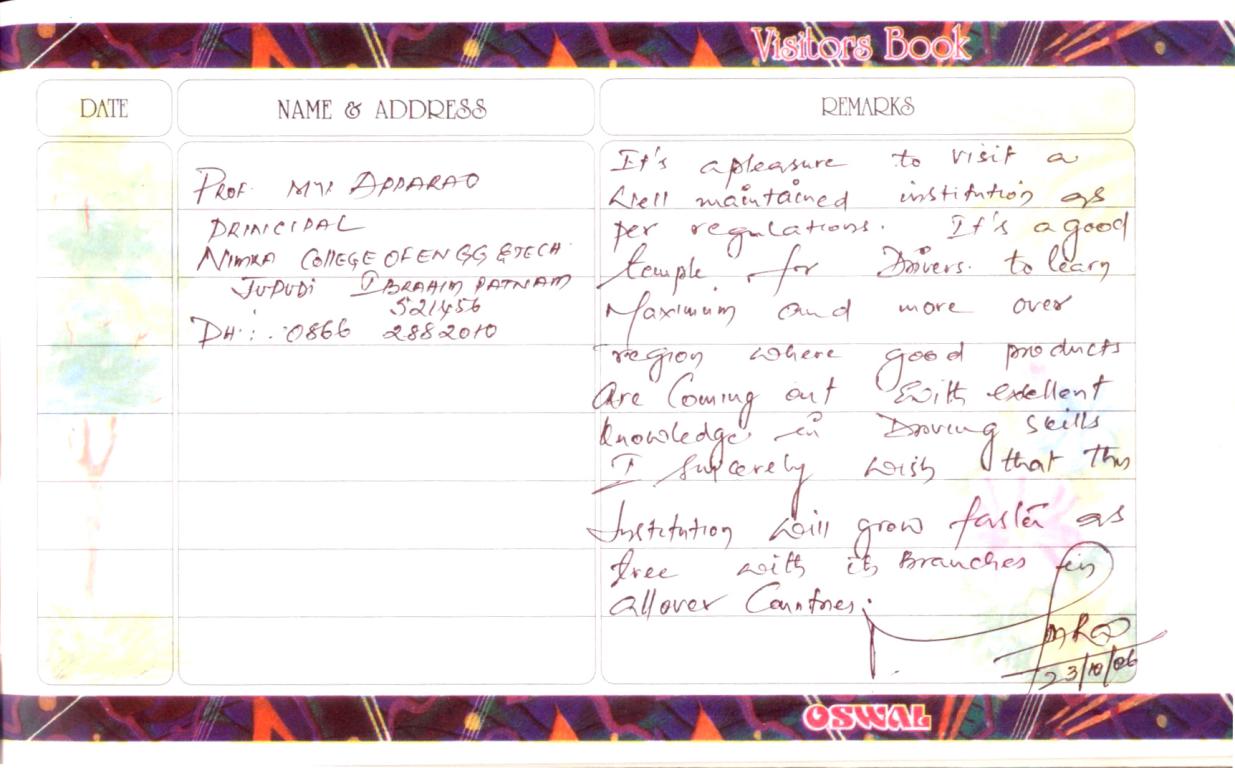 Visitors Book
DATE
NAME & ADDRESS
REMARKS
Prof. MVS APPARAO
PRINCIPAL
NIMRA COllEGE OF ENGG & TECH.
JUPUDI IBRAHIM PATNAM
521456
PH : . 0866 2882010
It's a pleasure to visit a
well maintained institution as
per regulations. It's a good
temple for Drivers. to learn
Maximum and more over
region where good products
are Coming out with excellent
knowledge in Driving skills
I sincerely wish that this
Institution will grow faster as
tree with its Branches in
all over Countries.
23/10/06
OSWAL